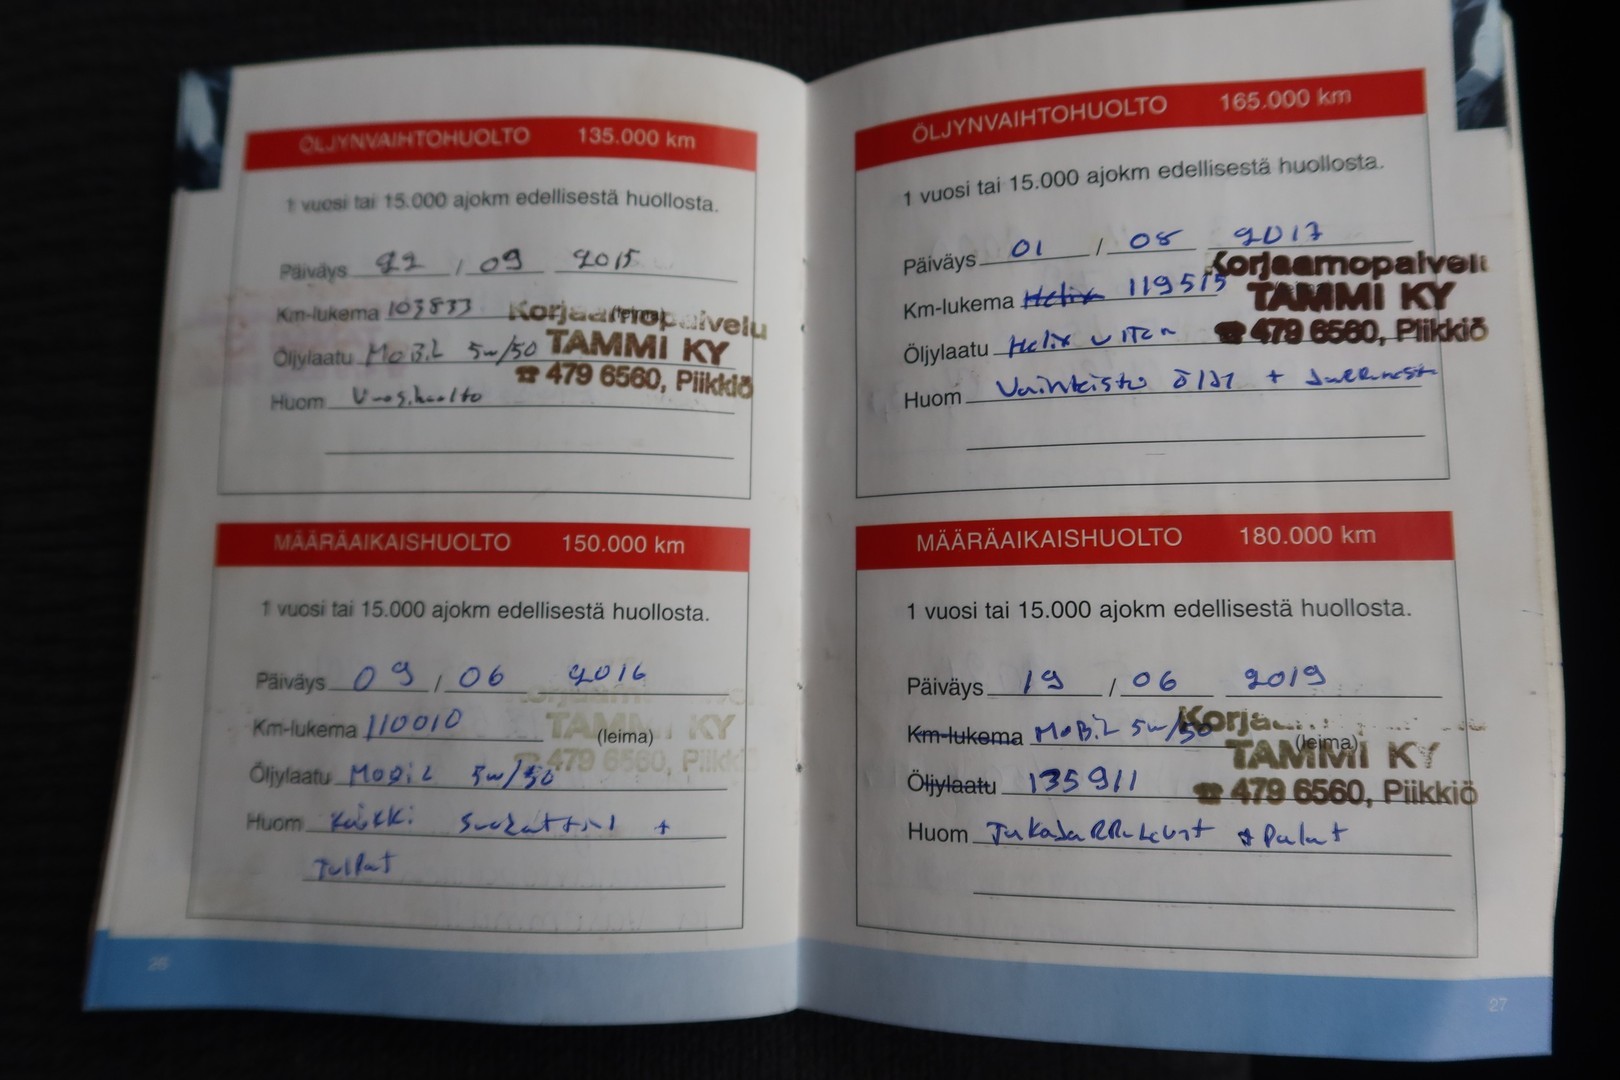 ÖLJYNVAIHTOHUOLTO 135.000 km
1 vuosi tai 15.000 ajokm edellisestä huollosta.
Päiväys 22 / 09 2015
Km-lukema 103833 (leima)
Korjaamopalvelu
Öljylaatu MOBIL 5w/50
TAMMI KY
☎ 479 6560, Piikkiö
Huom Vuosihuolto
MÄÄRÄAIKAISHUOLTO 150.000 km
1 vuosi tai 15.000 ajokm edellisestä huollosta.
Päiväys 09 / 06 2016
Km-lukema 110010 (leima)
Korjaam
TAMMI KY
☎ 479 6560, Piikk
Öljylaatu MOBIL 5w/50
Huom Kaikki Suodattimi +
Tulpat
26
ÖLJYNVAIHTOHUOLTO 165.000 km
1 vuosi tai 15.000 ajokm edellisestä huollosta.
Päiväys 01 / 08 2017
Korjaamopalvelu
Km-lukema Helix 119515
TAMMI KY
☎ 479 6560, Piikkiö
Öljylaatu Helix ULTRA
Huom Vaihteisto Öljy +
MÄÄRÄAIKAISHUOLTO 180.000 km
1 vuosi tai 15.000 ajokm edellisestä huollosta.
Päiväys 19 / 06 2019
Km-lukema MOBIL 5w/50 (leima)
Korja
TAMMI KY
☎ 479 6560, Piikkiö
Öljylaatu 135911
Huom TakaJaRRuLevyt + Palat
27